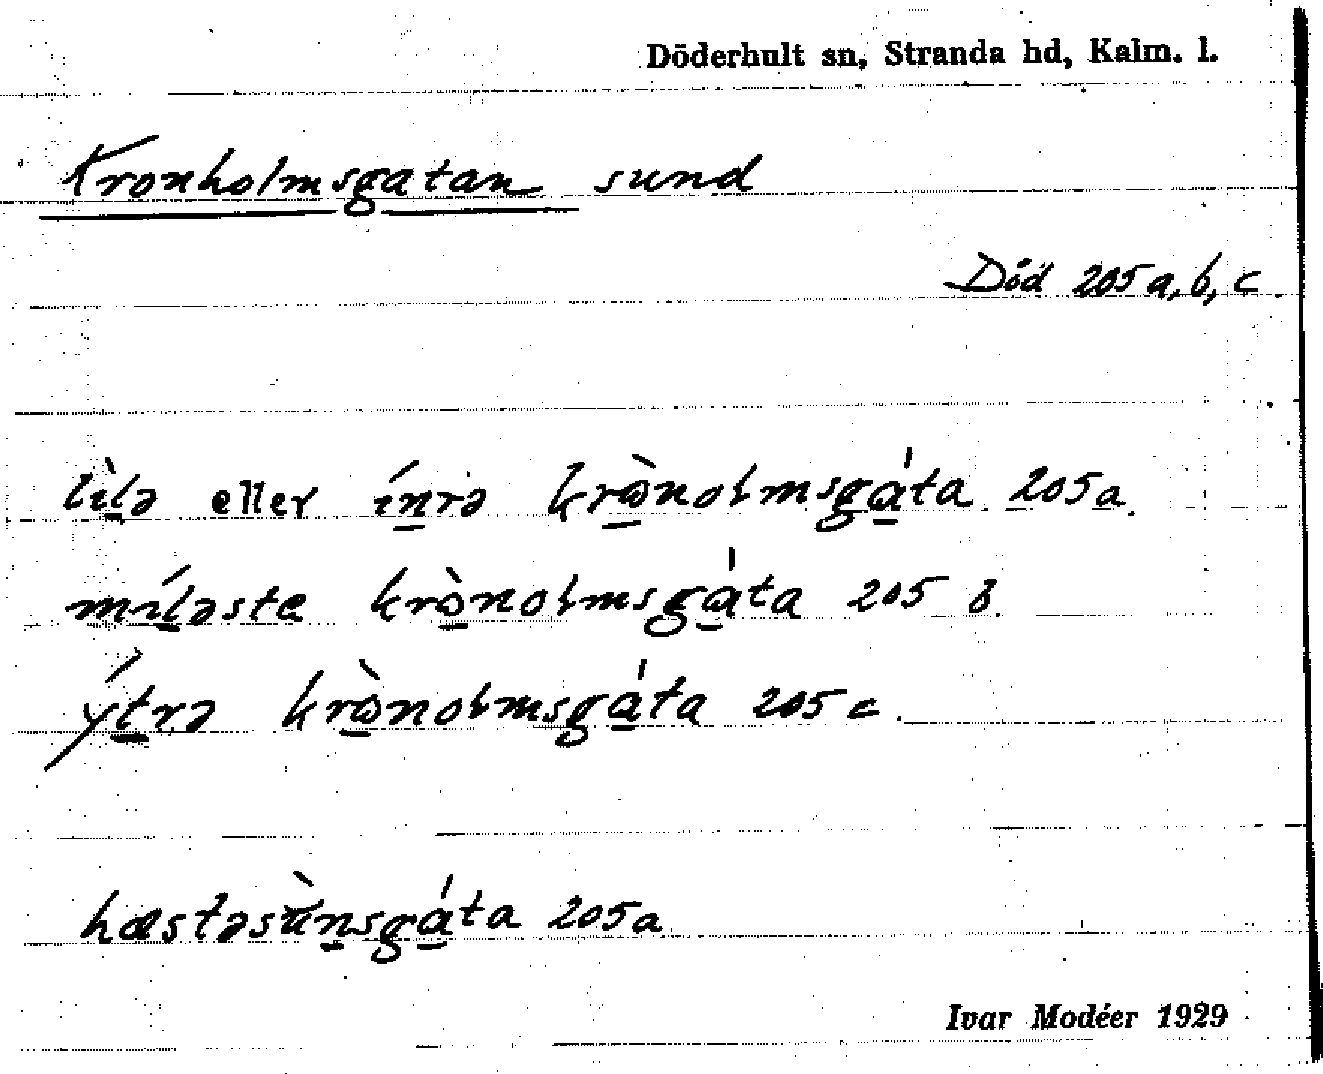 Döderhult sn, Stranda hd, Kalm. l.
Kronholmsgatan sund
Död 205 a, b, c
lìlə eller ínrə krònolmsgáta 205a.
míləste krònolmsgáta 205 b.
ýtrə krònolmsgáta 205 c
hæstəsùnsgáta 205a
Ivar Modéer 1929